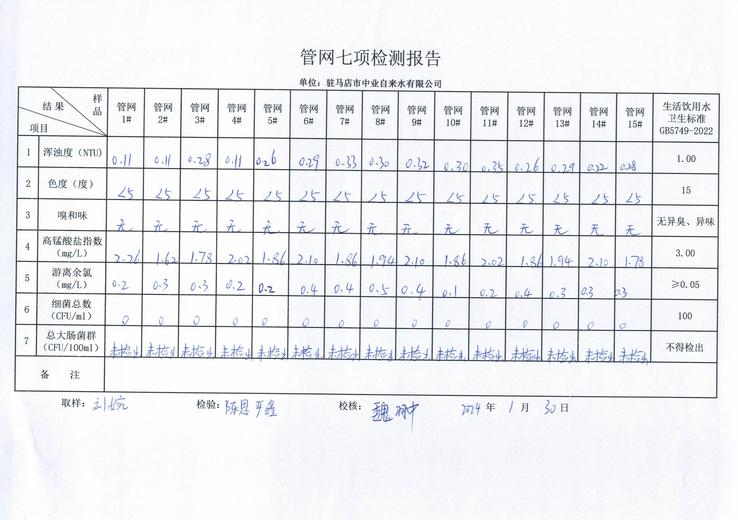 管网七项检测报告
单位：驻马店市中业自来水有限公司
结果 样品 项目 管网1# 管网2# 管网3# 管网4# 管网5# 管网6# 管网7# 管网8# 管网9# 管网10# 管网11# 管网12# 管网13# 管网14# 管网15# 生活饮用水卫生标准GB5749-2022
1 浑浊度（NTU） 0.11 0.11 0.28 0.11 0.26 0.29 0.33 0.30 0.32 0.30 0.35 0.26 0.29 0.22 0.28 1.00
2 色度（度） <5 <5 <5 <5 <5 <5 <5 <5 <5 <5 <5 <5 <5 <5 <5 15
3 嗅和味 无 无 无 无 无 无 无 无 无 无 无 无 无 无 无 无异臭、异味
4 高锰酸盐指数（mg/L） 2.26 1.62 1.78 2.02 1.86 2.10 1.86 1.94 2.10 1.86 2.02 1.86 1.94 2.10 1.78 3.00
5 游离余氯（mg/L） 0.2 0.3 0.3 0.2 0.2 0.4 0.4 0.5 0.4 0.1 0.2 0.4 0.3 0.3 0.3 ≥0.05
6 细菌总数（CFU/ml） 0 0 0 0 0 0 0 0 0 0 0 0 0 0 0 100
7 总大肠菌群（CFU/100ml） 未检出 未检出 未检出 未检出 未检出 未检出 未检出 未检出 未检出 未检出 未检出 未检出 未检出 未检出 未检出 不得检出
备 注
取样：刘婉 检验：陈恩 平鑫 校核：魏翀 2024 年 1 月 30 日